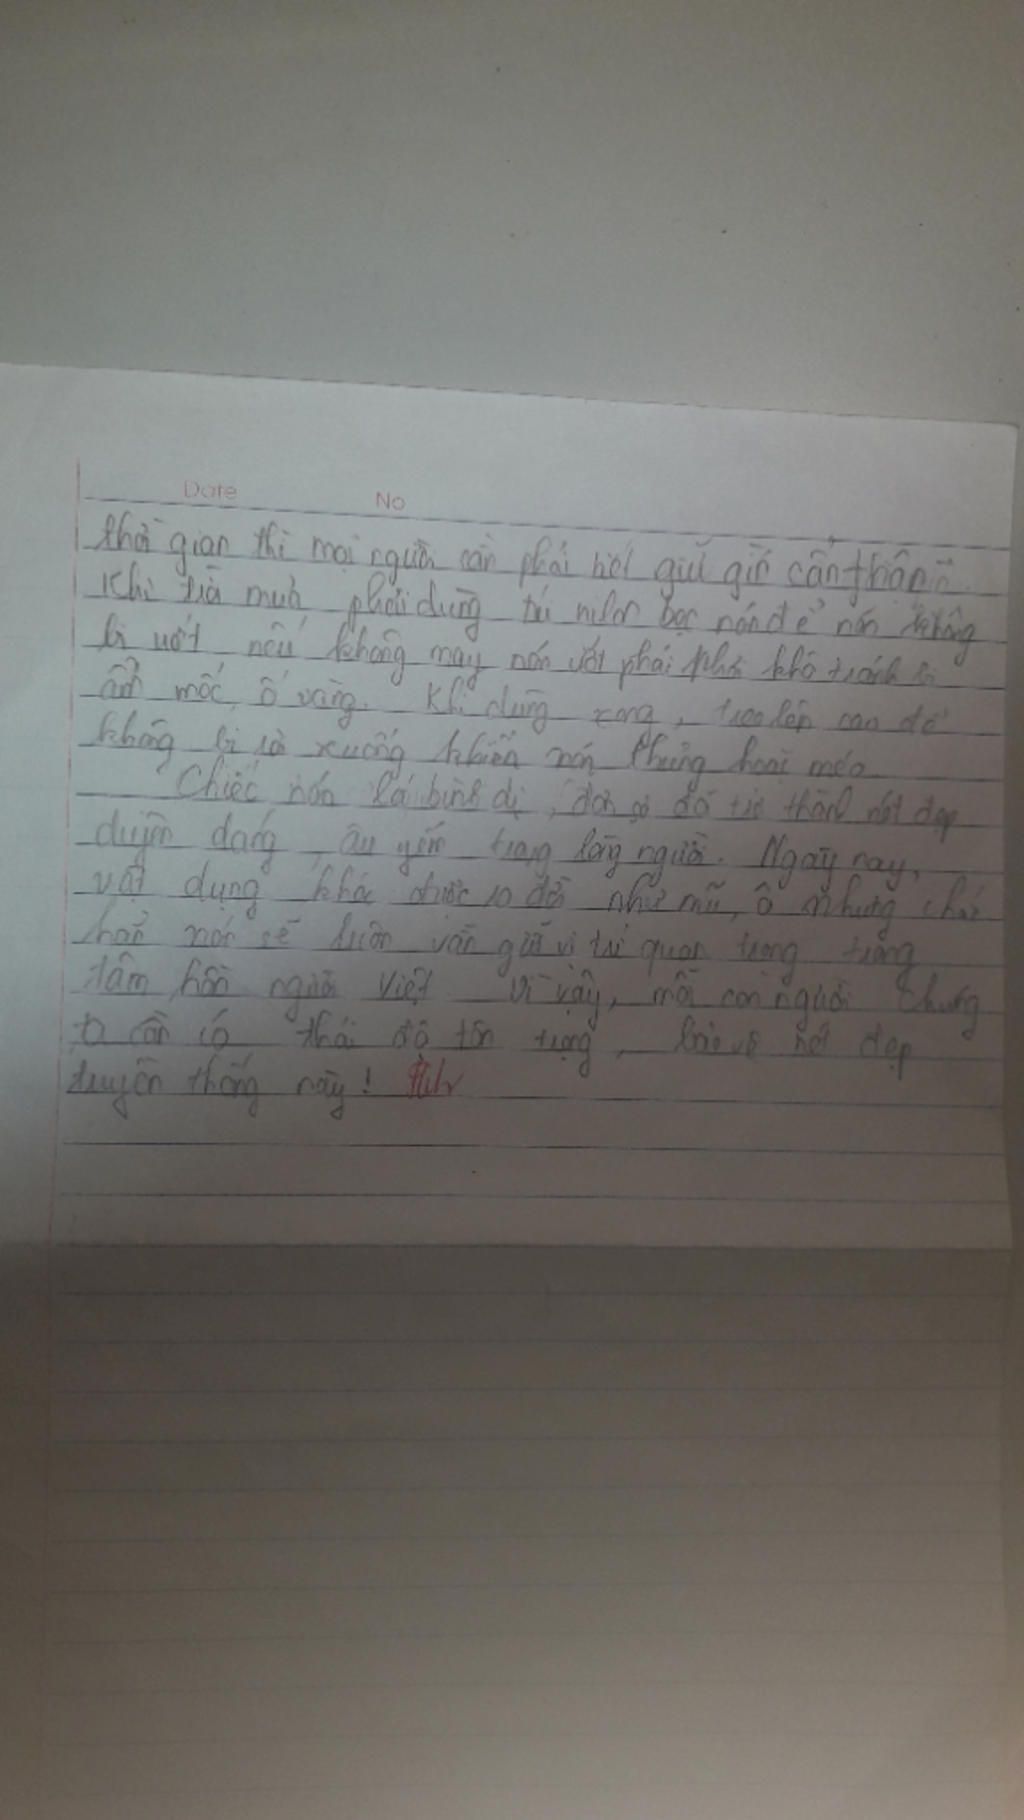 Date No
thời gian thì mọi người cần phải biết giữ gìn cẩn thận
Khi trời mưa phải dùng túi nilon bọc nón để nón không
bị ướt nếu không may nón ướt phải phơi khô tránh bị
ẩm mốc, ố vàng. Khi dùng xong, treo lên cao để
không bị rơi xuống khiến nón thủng hoặc méo
Chiếc nón lá bình dị, đơn sơ đó trở thành nét đẹp
duyên dáng, âu yếm trong lòng người. Ngày nay,
vật dụng khác được ra đời như mũ, ô nhưng chắc
hẳn nón sẽ luôn vẫn giữ vị trí quan trọng trong
tâm hồn người Việt Vì vậy, mỗi con người chúng
ta cần có thái độ tôn trọng, bảo vệ nét đẹp
truyền thống này!